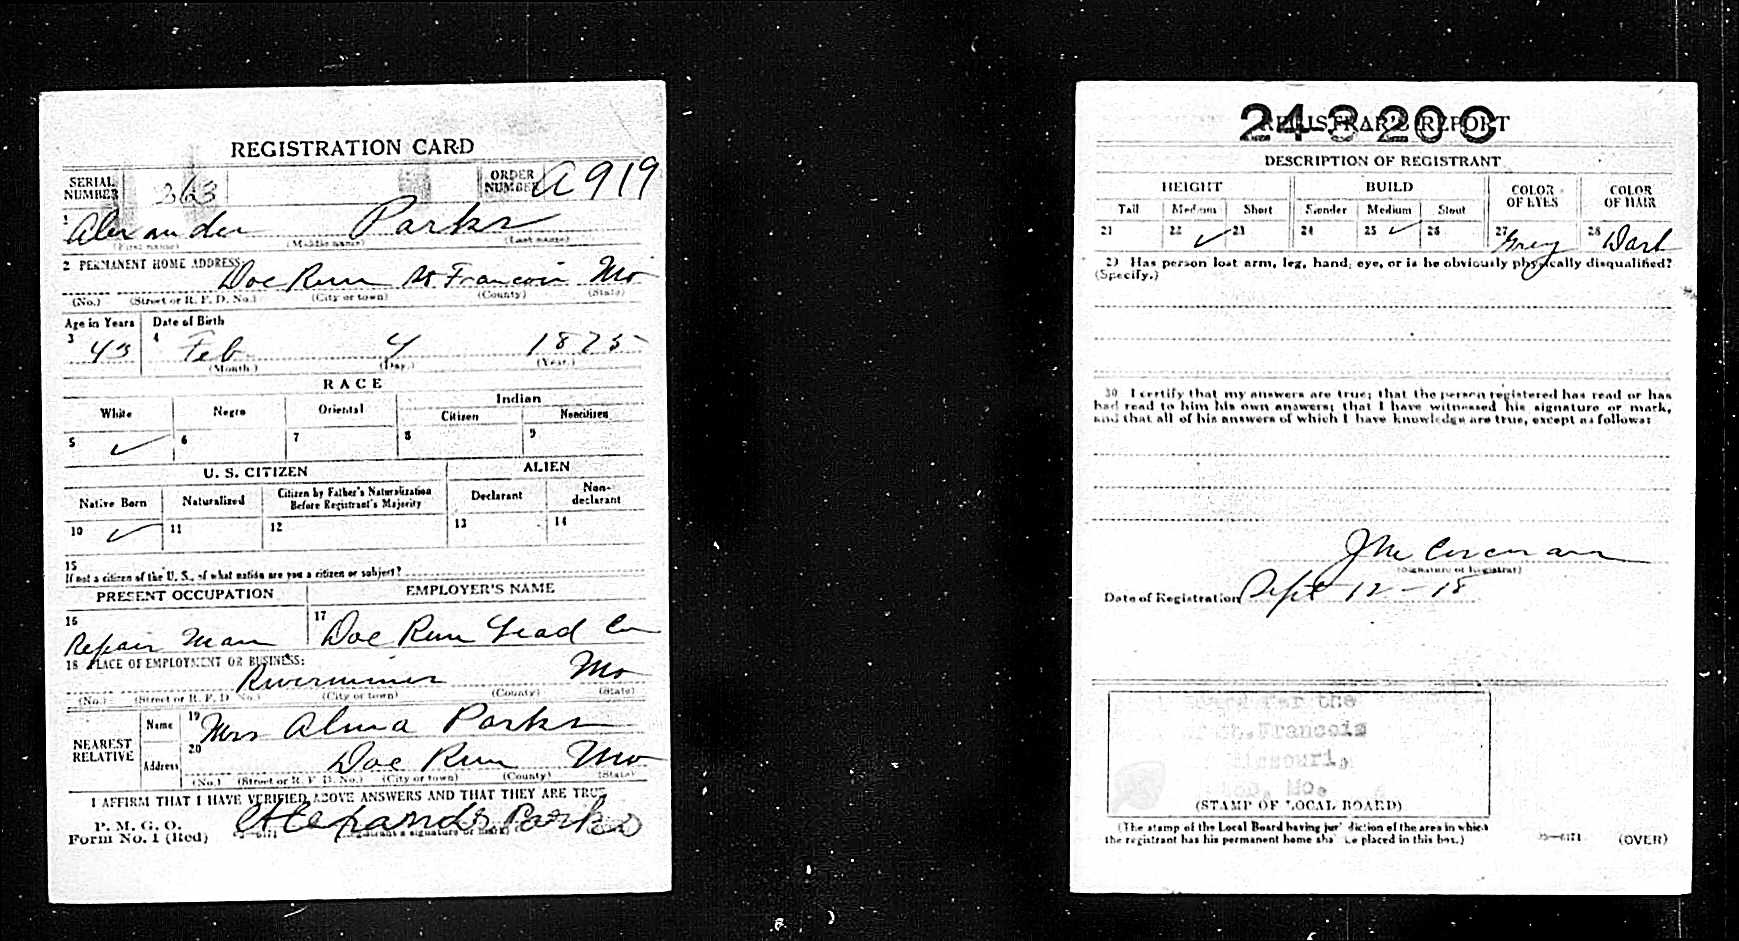 REGISTRATION CARD
SERIAL NUMBER 363 ORDER NUMBER A919
1 Alexander Parks
(First name) (Middle name) (Last name)
2 PERMANENT HOME ADDRESS: Doe Run St Francois Mo
(No.) (Street or R. F. D. No.) (City or town) (County) (State)
Age in Years Date of Birth
3 43 4 Feb 4 1875
(Month) (Day) (Year)
RACE
White Negro Oriental Indian
Citizen Noncitizen
5 ✓ 6 7 8 9
U. S. CITIZEN ALIEN
Native Born Naturalized Citizen by Father's Naturalization Before Registrant's Majority Declarant Non-declarant
10 ✓ 11 12 13 14
15
If not a citizen of the U. S., of what nation are you a citizen or subject?
PRESENT OCCUPATION EMPLOYER'S NAME
16 Repair Man 17 Doe Run Lead Co
18 PLACE OF EMPLOYMENT OR BUSINESS:
Rivermines Mo
(No.) (Street or R. F. D. No.) (City or town) (County) (State)
NEAREST RELATIVE Name 19 Mrs Alma Parks
Address 20 Doe Run Mo
(No.) (Street or R. F. D. No.) (City or town) (County) (State)
I AFFIRM THAT I HAVE VERIFIED ABOVE ANSWERS AND THAT THEY ARE TRUE
P. M. G. O.
Form No. 1 (Red) Parks
(Registrant's signature or mark)
REGISTRAR'S REPORT
24 3 20 C
DESCRIPTION OF REGISTRANT
HEIGHT BUILD COLOR OF EYES COLOR OF HAIR
Tall Medium Short Slender Medium Stout
21 22 ✓ 23 24 25 ✓ 26 27 Grey 28 Dark
29 Has person lost arm, leg, hand, eye, or is he obviously physically disqualified?
(Specify.)
30 I certify that my answers are true; that the person registered has read or has
had read to him his own answers; that I have witnessed his signature or mark,
and that all of his answers of which I have knowledge are true, except as follows:
(Signature of Registrar)
Date of Registration Sept 12-18
for the
Francois
Missouri,
Mo.
(STAMP OF LOCAL BOARD)
(The stamp of the Local Board having jurisdiction of the area in which
the registrant has his permanent home shall be placed in this box.)
(OVER)